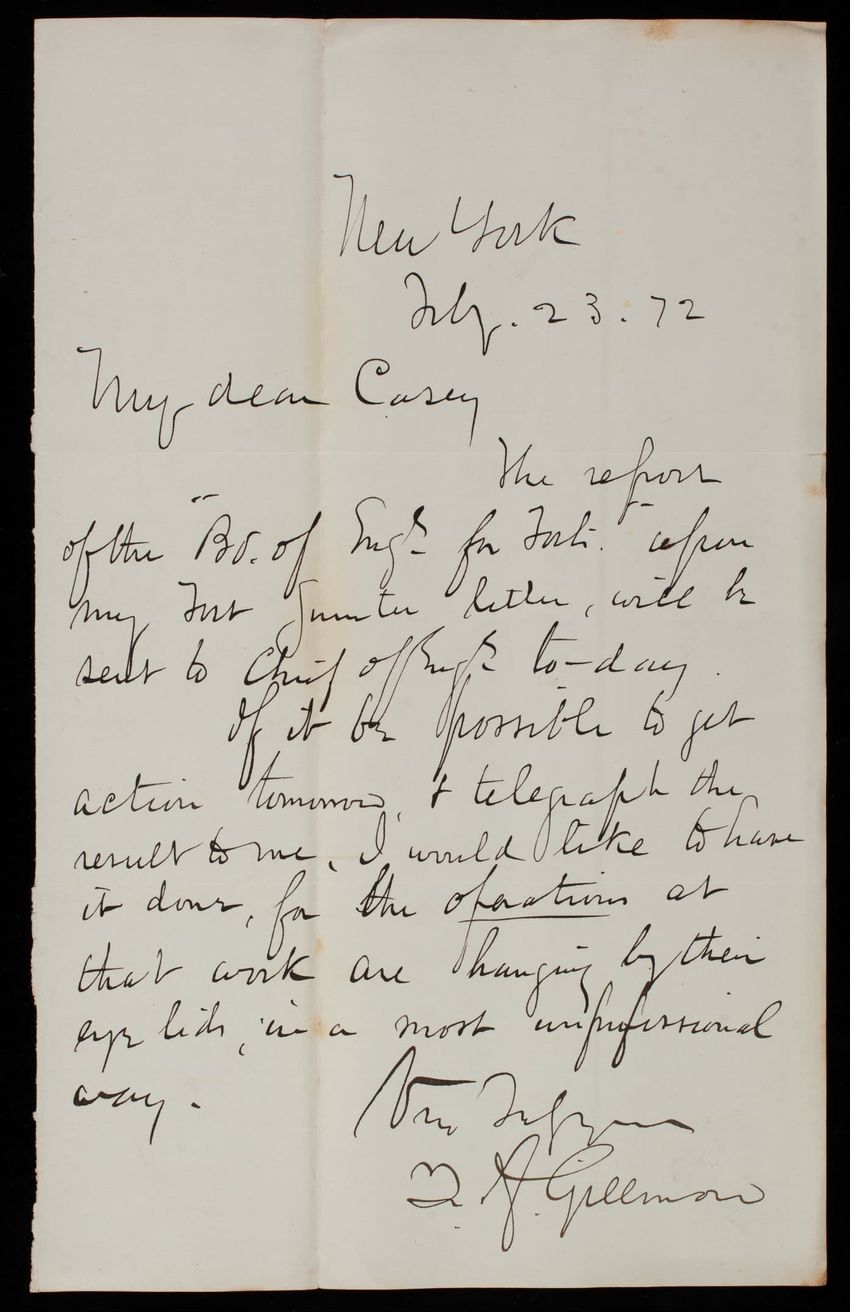 New York
Feby. 23. 72
My dear Casey
The report
of the "Bd. of Engrs for Forts." upon
my Fort Sumter letter, will be
sent to Chief of Engrs to-day.
If it be possible to get
action tomorrow, & telegraph the
result to me, I would like to have
it done, for the operations at
that work are hanging by their
eye lids, in a most unprofessional
way.
Q. A. Gillmore